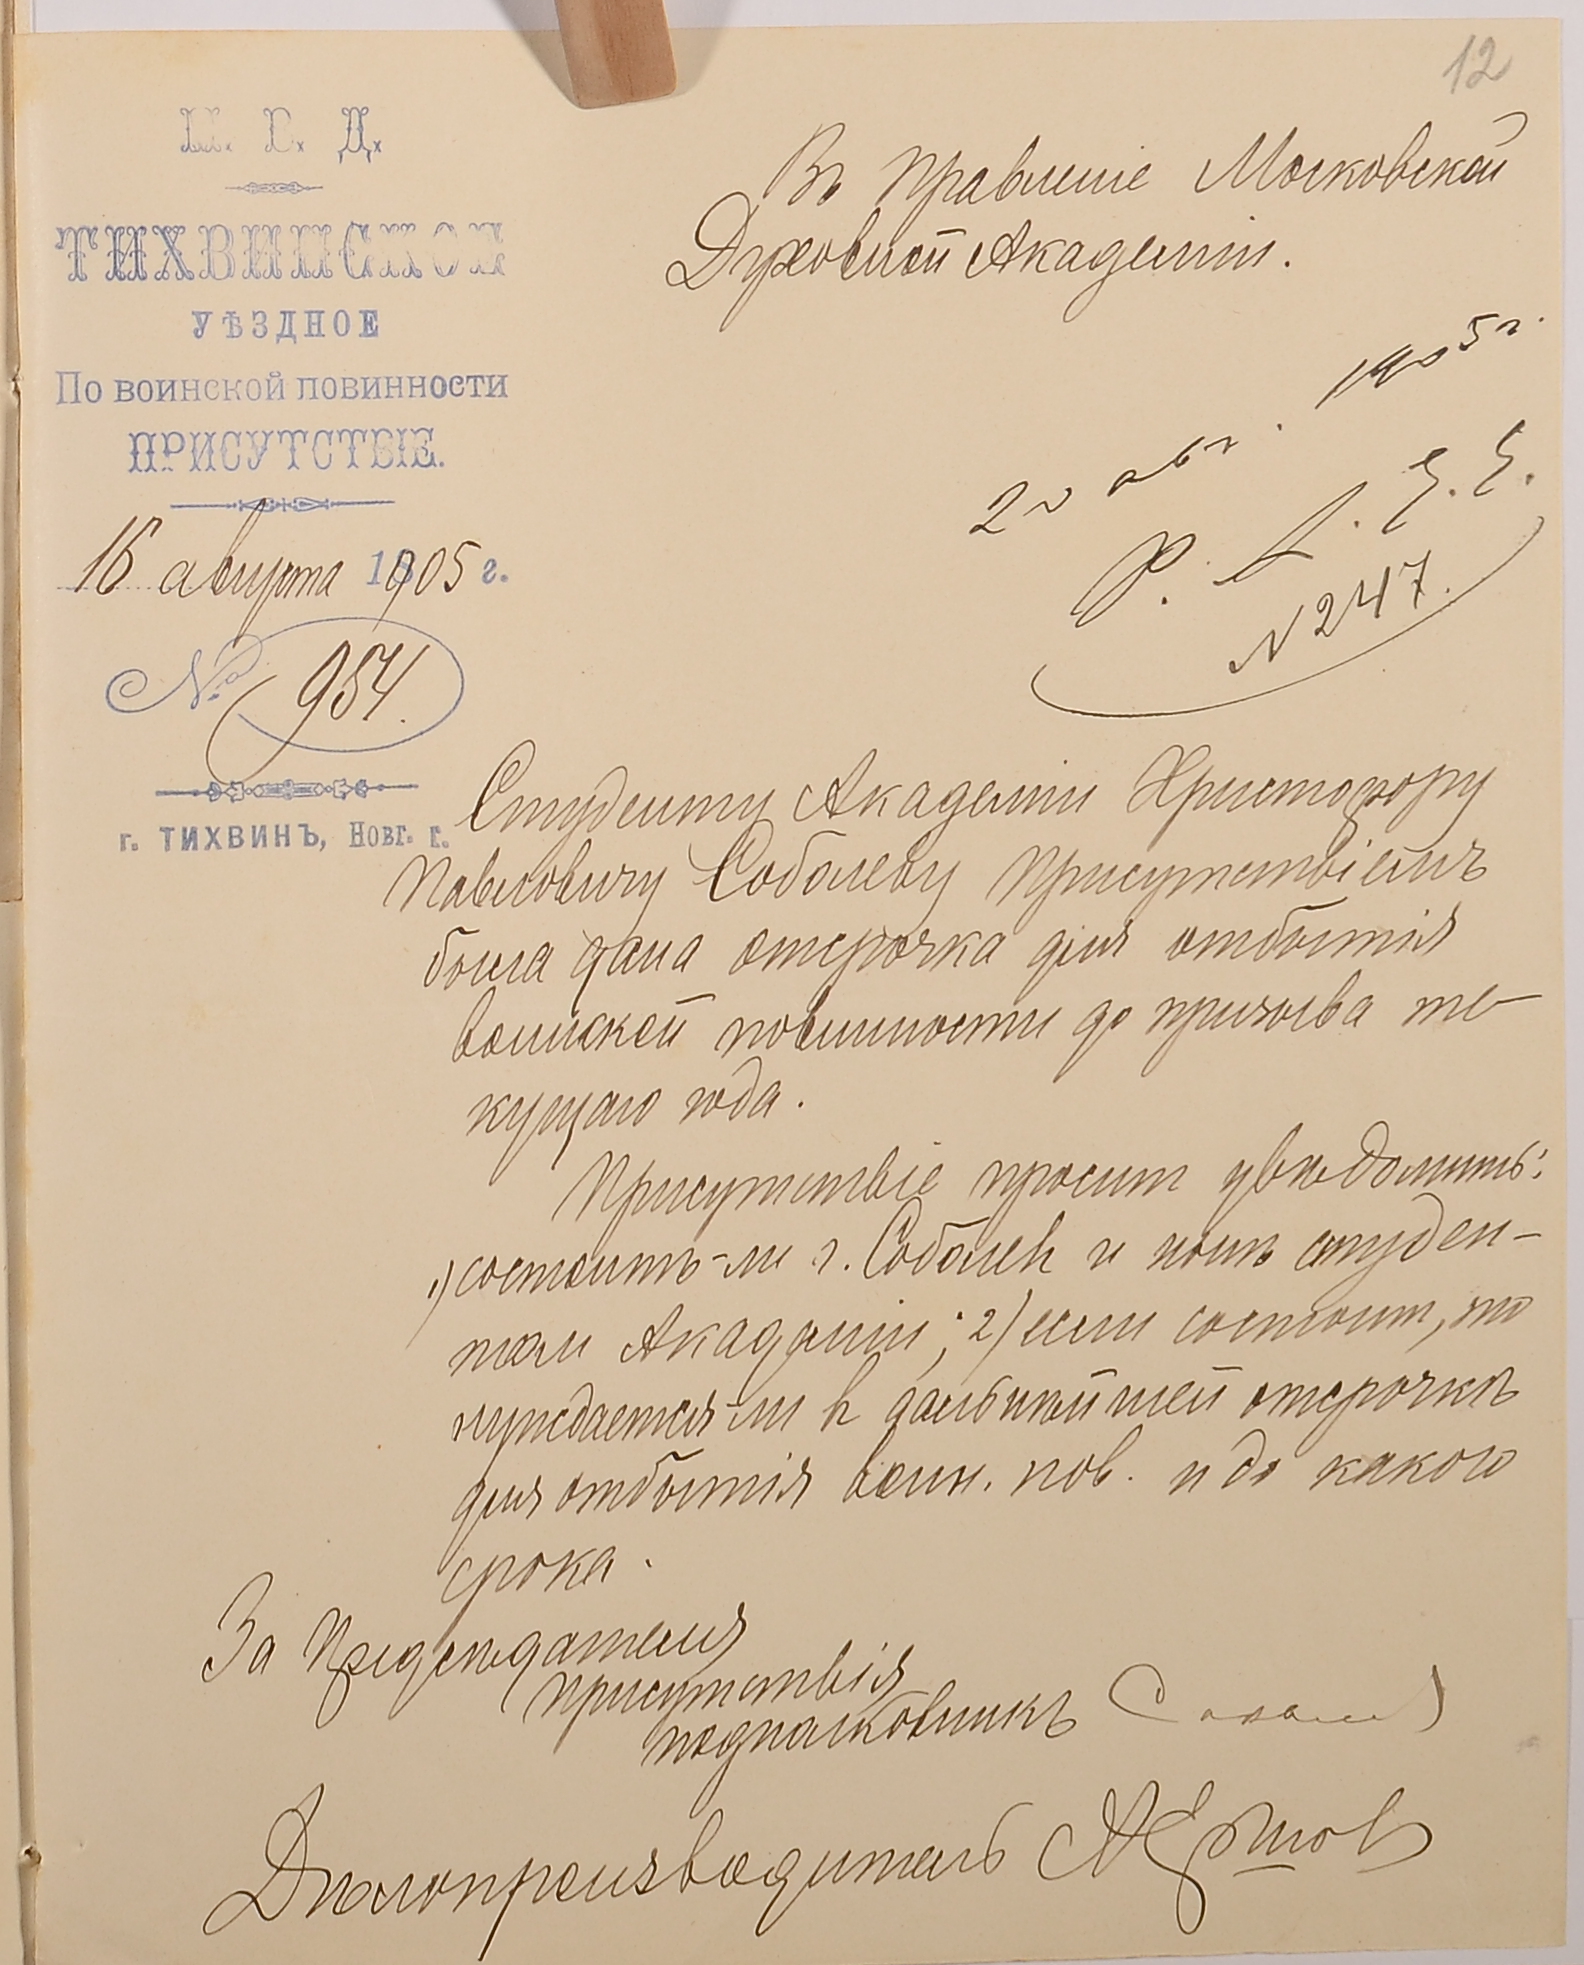 12
М. В. Д.
ТИХВИНСКОЕ
УѢЗДНОЕ
По воинской повинности
ПРИСУТСТВІЕ.
16 августа 1905 г.
№ 954.
г. ТИХВИНЪ, Новг. г.
Въ Правленіе Московской
Духовной Академіи.
20 авг. 1905 г.
Р. А. Е. Е.
№ 247.
Студенту Академіи Христофору
Павловичу Соболеву Присутствіемъ
была дана отсрочка для отбытія
воинской повинности до призыва те-
кущаго года.
Присутствіе просит увѣдомить:
1) состоитъ-ли г. Соболев и нынѣ студен-
том Академіи; 2) если состоит, то
нуждается-ли в дальнѣйшей отсрочкѣ
для отбытія воин. пов. и до какого
срока.
За Предсѣдателя
присутствія
подполковникъ
Дѣлопроизводитель А Ершов